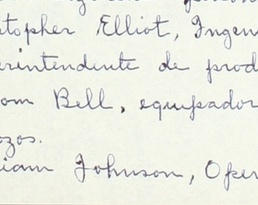 topher Elliot, Ingen
erintendente de prod
om Bell, equipador
ozos.
iam Johnson, Oper